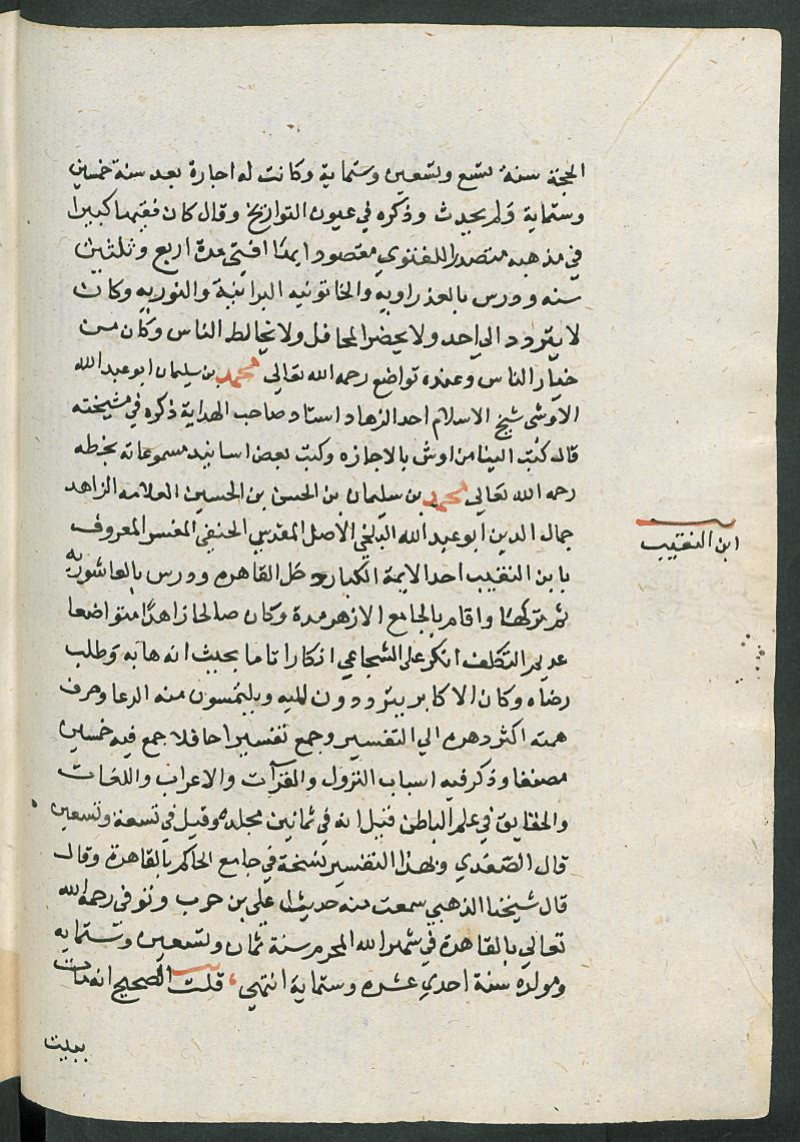 الحجة سنة تسع وتسعين وستماية وكانت له اجازة بعد سنة خمسين
وستماية ولم يحدث وذكره في عيون التواريخ وقال كان فقيها كبيرا
في مذهبه متصدرا للفتوي مقصودا بهذا افتى مدة اربع وثلثين
سنه ودرس بالعذراويه والخاتونيه البرانية والنوريه وكان
لا يتردد الى احد ولا يحضر المحافل ولا يخالط الناس وكان من
خيار الناس وعنده تواضع رحمه الله تعالى محمد بن سليمان ابو عبد الله
الاوشى شيخ الاسلام احد الزهاد استاد صاحب الهداية ذكره في مشيخته
قال كتب الينا من اوش بالاجازه وكتب بعض اسانيد مسموعاته بخطه
رحمه الله تعالى محمد بن سليمان بن الحسن بن الحسين العلامه الزاهد
جمال الدين ابو عبد الله البلخي الاصل المقدسي الحنفي المفسر المعروف
ابن النقيب
بابن النقيب احد الايمة الكبار دخل القاهره ودرس بالعاشوريه
ثم تركها واقام بالجامع الازهر مدة وكان صالحا زاهدا متواضعا
عديم التكلف انكر على الشجاعي انكارا تاما بحيث انه هابه وطلب
رضاه وكان الاكابر يترددون اليه ويلتمسون منه الدعا وصرف
همته اكثر دهره الي التفسير وجمع تفسيرا حافلا جمع فيه خمسين
مصنفا وذكر فيه اسباب النزول والقرآت والاعراب واللغات
والحقايق في علم الباطن قيل انه في ثمانين مجلده وقيل في تسعة وتسعين
قال الصفدي وبهذا التفسير نسخة في جامع الحاكم بالقاهرة وقال
قال شيخنا الذهبي سمعت منه حديث علي بن حرب وتوفى رحمه الله
تعالي بالقاهرة في شهر الله المحرم سنة ثمان وتسعين وستمايه
ومولده سنة احدي عشره وستماية انتهي، قلت الصحيح انه مات
ببيت